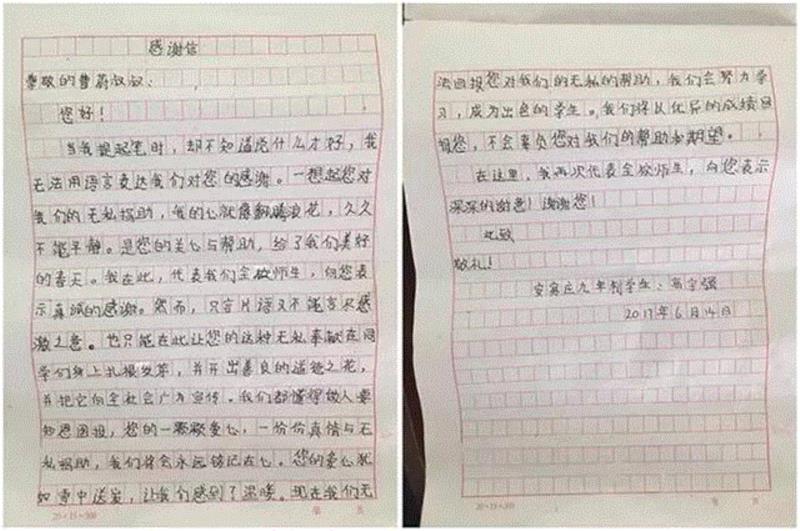 感谢信
尊敬的曹蔚叔叔：
您好！
当我提起笔时，却不知道说什么才好，我
无法用语言表达我们对您的感谢。一想起您对
我们的无私捐助，我的心就像翻腾浪花，久久
不能平静。是您的关心与帮助，给了我们美好
的春天。我在此，代表我们全校师生，向您表
示真诚的感谢。然而，只言片语又不能言尽感
激之意。也只能在此让您的这种无私奉献在同
学们身上扎根发芽，并开出善良的道德之花，
并把它向全社会广为宣传。我们都懂得做人要
知恩图报，您的一颗颗爱心，一份份真情与无
私捐助，我们将会永远铭记在心。您的爱心犹
如雪中送炭，让我们感到了温暖。现在我们无
20×15=300
第 页
法回报您对我们的无私的帮助，我们会努力学
习，成为出色的学生。我们将以优异的成绩回
报您，不会辜负您对我们的帮助和期望。
在这里，我再次代表全校师生，向您表示
深深的谢意！谢谢您！
此致
敬礼！
安寨庄九年制学生：高宇强
2017年6月14日
20×15=300
第 页